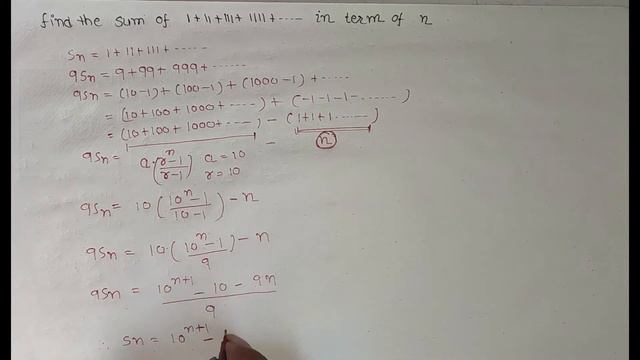 find the sum of 1+11+111+1111+····· in term of n
Sn = 1+11+111+······
9Sn = 9+99+999+······
9Sn = (10-1)+(100-1)+(1000-1)+·····
= (10+100+1000+-----)+(-1-1-1-······)
= (10+100+1000+----)-(1+1+1······)
9Sn = a(r^n-1/r-1) a=10 - n
r=10
9Sn = 10(10^n-1/10-1)-n
9Sn = 10(10^n-1/9)-n
9Sn = 10^n+1 - 10 - 9n/9
∴ Sn = 10^n+1 -